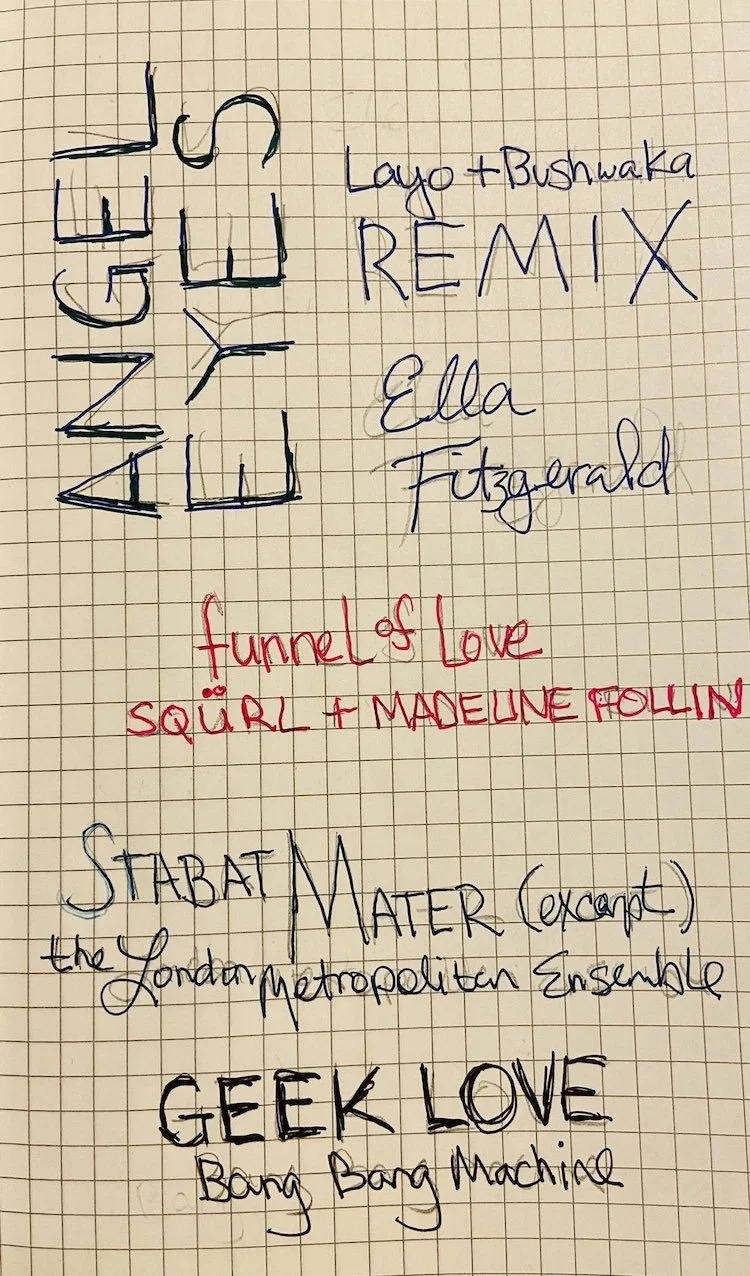 ANGEL
EYES
Layo + Bushwaka
REMIX
Ella
Fitzgerald
funneL of Love
SQÜRL + MADELINE FOLLIN
STABAT MATER (excerpt)
the London Metropolitan Ensemble
GEEK LOVE
Bang Bang Machine